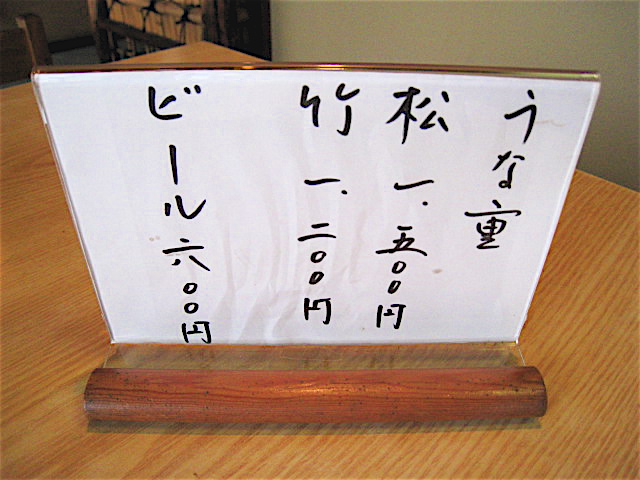 うな重
松 一、五〇〇円
竹 一、二〇〇円
ビール 六〇〇円